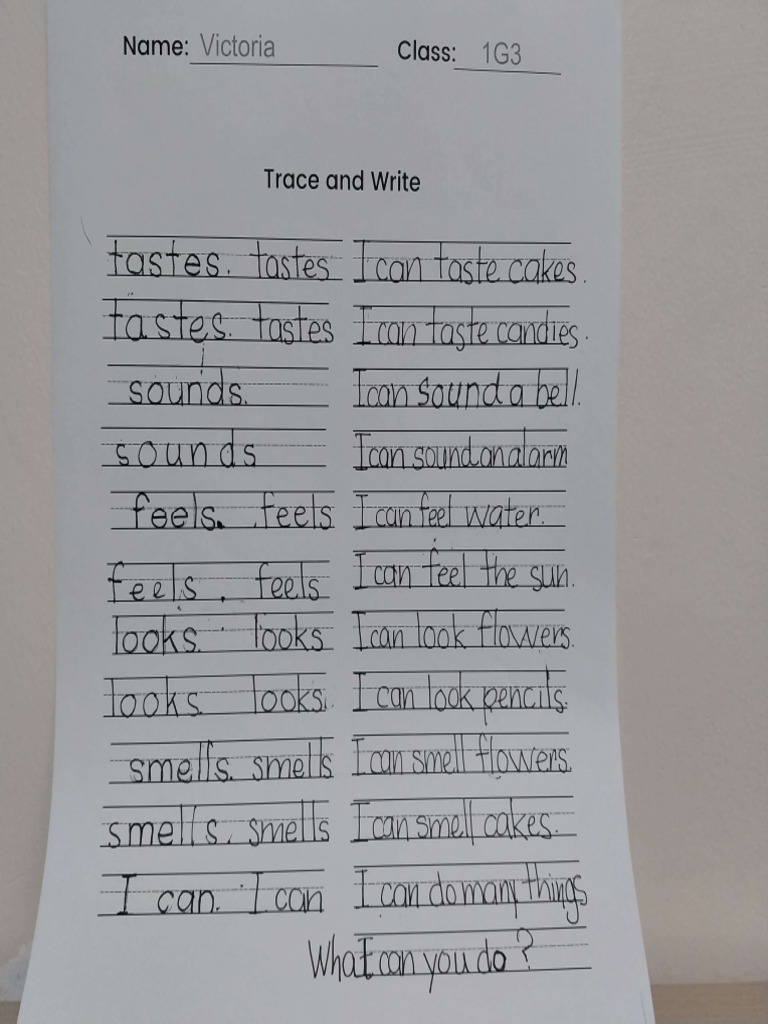 Name: Victoria Class: 1G3
Trace and Write
tastes. tastes I can taste cakes.
tastes. tastes I can taste candies.
sounds. I can sound a bell.
sounds I can sound an alarm
feels. feels I can feel water.
feels. feels I can feel the sun.
looks. looks I can look flowers.
looks. looks. I can look pencils.
smells. smells I can smell flowers.
smells. smells I can smell cakes.
I can. I can I can do many things
What can you do?